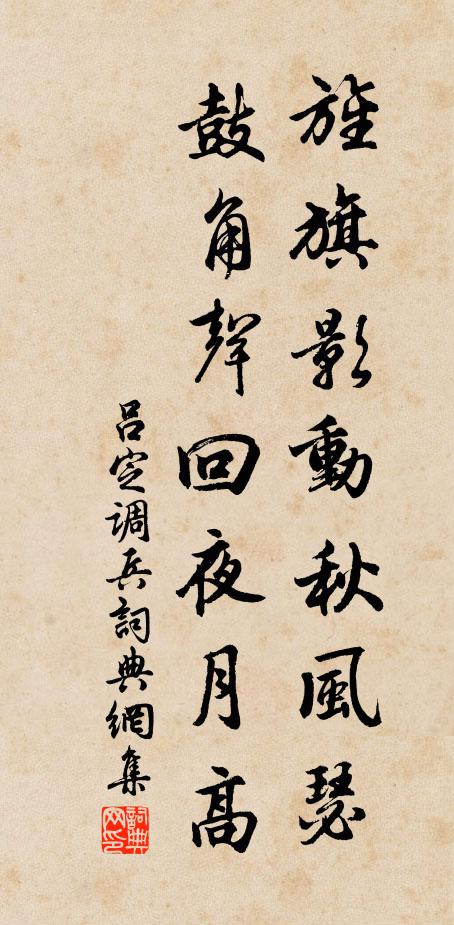 旌旗影動秋風瑟
鼓角聲回夜月高
吕定調兵詞典網集
詞典
网印